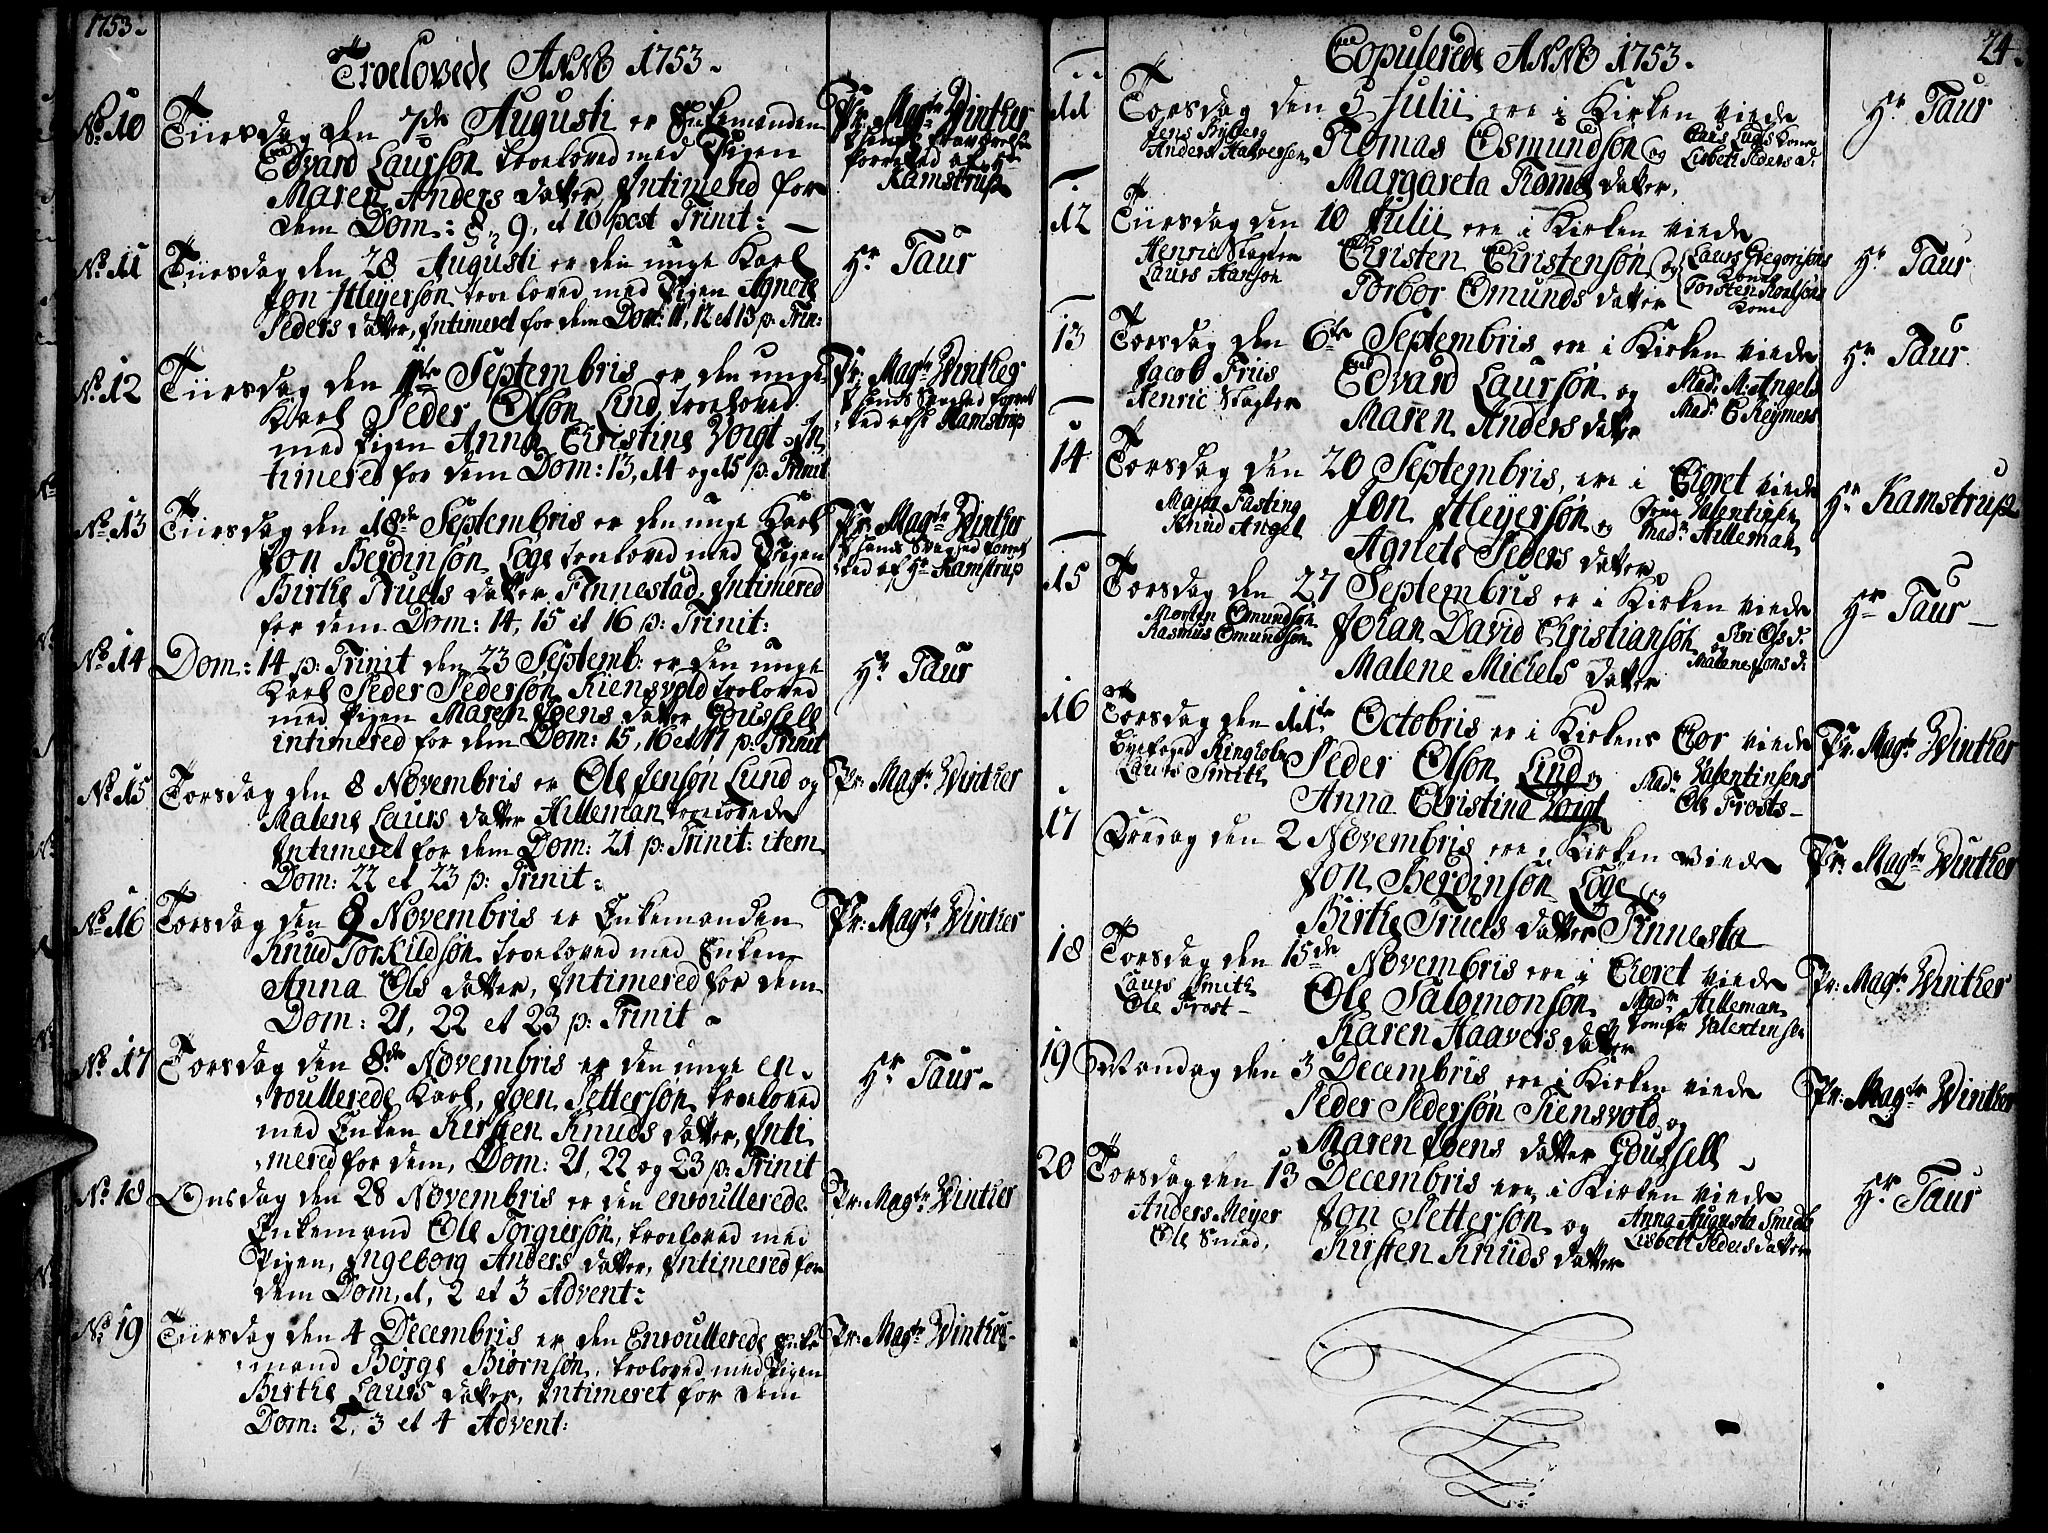 1753.
Troelovede ANNO 1753.
No. 10 Tiirsdag den 7de Augusti er Enkemanden
Edvard Laursøn troeloved med Pigen
Maren Anders datter, Intimered for
dem Dom: 8, 9, et 10 post Trinit:
Pr. Magtr Winther
forretted af Hr
Kamstrup
No. 11 Tiirsdag den 28 Augusti er den unge Karl
Jon Heyersøn troeloved med Pigen Agnete
Peders datter, Intimeret for dem Dom: 11, 12 et 13 p: Trin:
Hr Taur
No. 12 Tiirsdag den Septembris er den unge
Karl Peder Olsøn Lind, troeloved
med Pigen Anna Christine Voigt In
timered for dem Dom: 13, 14 og 15 p: Trinit
Pr. Magtr Winther
Kamstrup
No. 13 Tiirsdag den 18de Septembris er den unge Karl
Jon Berdinsøn Løge troeloved med Pigen
Birthe Truels datter Finnestad, Intimered
for dem Dom: 14, 15 et 16 p: Trinit:
Pr. Magtr Winther
af Hr Kamstrup
No. 14 Dom: 14 p: Trinit den 23 Septemb: er den unge
Karl Peder Pedersøn Kiensvold troloved
med Pigen Maren Joens datter Goussell
intimered for dem Dom: 15, 16 et 17 p: Trinit
Hr Taur
No. 15 Torsdag den 8 Novembris er Ole Jensøn Lund og
Malene Laurs datter Hilleman troelovede
Intimeret for dem Dom: 21 p: Trinit: item
Dom: 22 et 23 p: Trinit:
Pr. Magtr Winther
No. 16 Torsdag den 8 Novembris er Enkemanden
Knud Torkildsøn troeloved med Enken
Anna Ols datter, Intimered for dem
Dom: 21, 22 et 23 p: Trinit
Pr: Magtr Winther
No. 17 Torsdag den 8de Novembris er den unge en
roullerede Karl, Joen Pettersøn troeloved
med Enken Kirsten Knuds datter, Inti
mered for dem, Dom: 21, 22 og 23 p: Trinit
Hr Taur
No. 18 Onsdag den 28 Novembris er den enroullerede
Enkemand Ole Torgiersøn, troeloved med
Pigen, Ingeborg Anders datter, Intimered for
dem Dom, 1, 2 et 3 Advent:
Pr: Magtr Winther
No. 19 Tiirsdag den 4 Decembris er den Enroullerede Enke
mand Børge Biørnsøn, troloved med Pigen
Birthe Laurs datter, Intimeret for dem
Dom: 2, 3 et 4 Advent:
Pr: Magtr Winther
24.
Copulerede ANNO 1753.
11 Torsdag den 5 Julii ere i Kirken viede
Jens Byberg
Anders Halversen
Tomas Osmundsøn og
Margareta Toms datter,
Lisbeth Peders d:
Hr Taur
12 Tiirsdag den 10 Julii ere i Kirken viede
Henric Slagter
Laurs Hansøn
Christen Christensøn og
Torbor Omunds datter
Laurs Gregorisøns
Kone
Torsten Roalsøns
Kone
Hr Taur
13 Torsdag den 6te Septembris ere i Kirken viede
Jacob Friis
Henric Slagter
Edvard Laursøn og
Maren Anders datter
Mad: M: Angels
Mad: C Reymers
Hr Taur
14 Torsdag den 20 Septembris, ere i Choret viede
Major Fasting
Knud Angel
Jon Heyersøn og
Agnete Peders datter
Valentinsen
Mad: Hilleman
Hr Kamstrup
15 Torsdag den 27 Septembris er i Kirken viede
Morten Omundsøn
Rasmus Omundsøn
Johan David Christiansøn og
Malene Michels datter
Siri Ols d:
Malene Jons d:
Hr Taur
16 Torsdag den 11te Octobris er i Kirkens Chor viede
Byefoged Ringholm
Laurs Smith
Peder Olsøn Lind og
Anna Christina Voigt
Madm Valentinsens
Ole Frosts
Pr. Magtr Winther
17 Fredag den 2 Novembris ere i Kirken viede
Jon Berdinsøn Løge og
Birthe Truels datter Finnesta
Pr: Magtr Winther
18 Torsdag den 15de Novembris ere i Choret viede
Laurs Smith
Ole Frost
Ole Salomonsøn
Karen Haavers datter
Madm Hilleman
Jomfr Valentinsen
Pr: Magtr Winther
19 Mandag den 3 Decembris ere i Kirken viede
Peder Pedersøn Tiensvold og
Maren Joens datter Goussell
Pr: Magtr Winther
20 Torsdag den 13 Decembris ere i Kirken viede
Anders Meyer
Ole Smed,
Jon Pettersøn og
Kirsten Knuds datter
Anna Augusta Smidt
Lisbeth Peders datter
Hr Taur